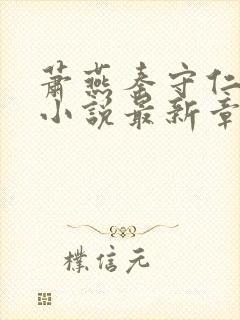 萧燕秦守仁
小说最新章
樸信元